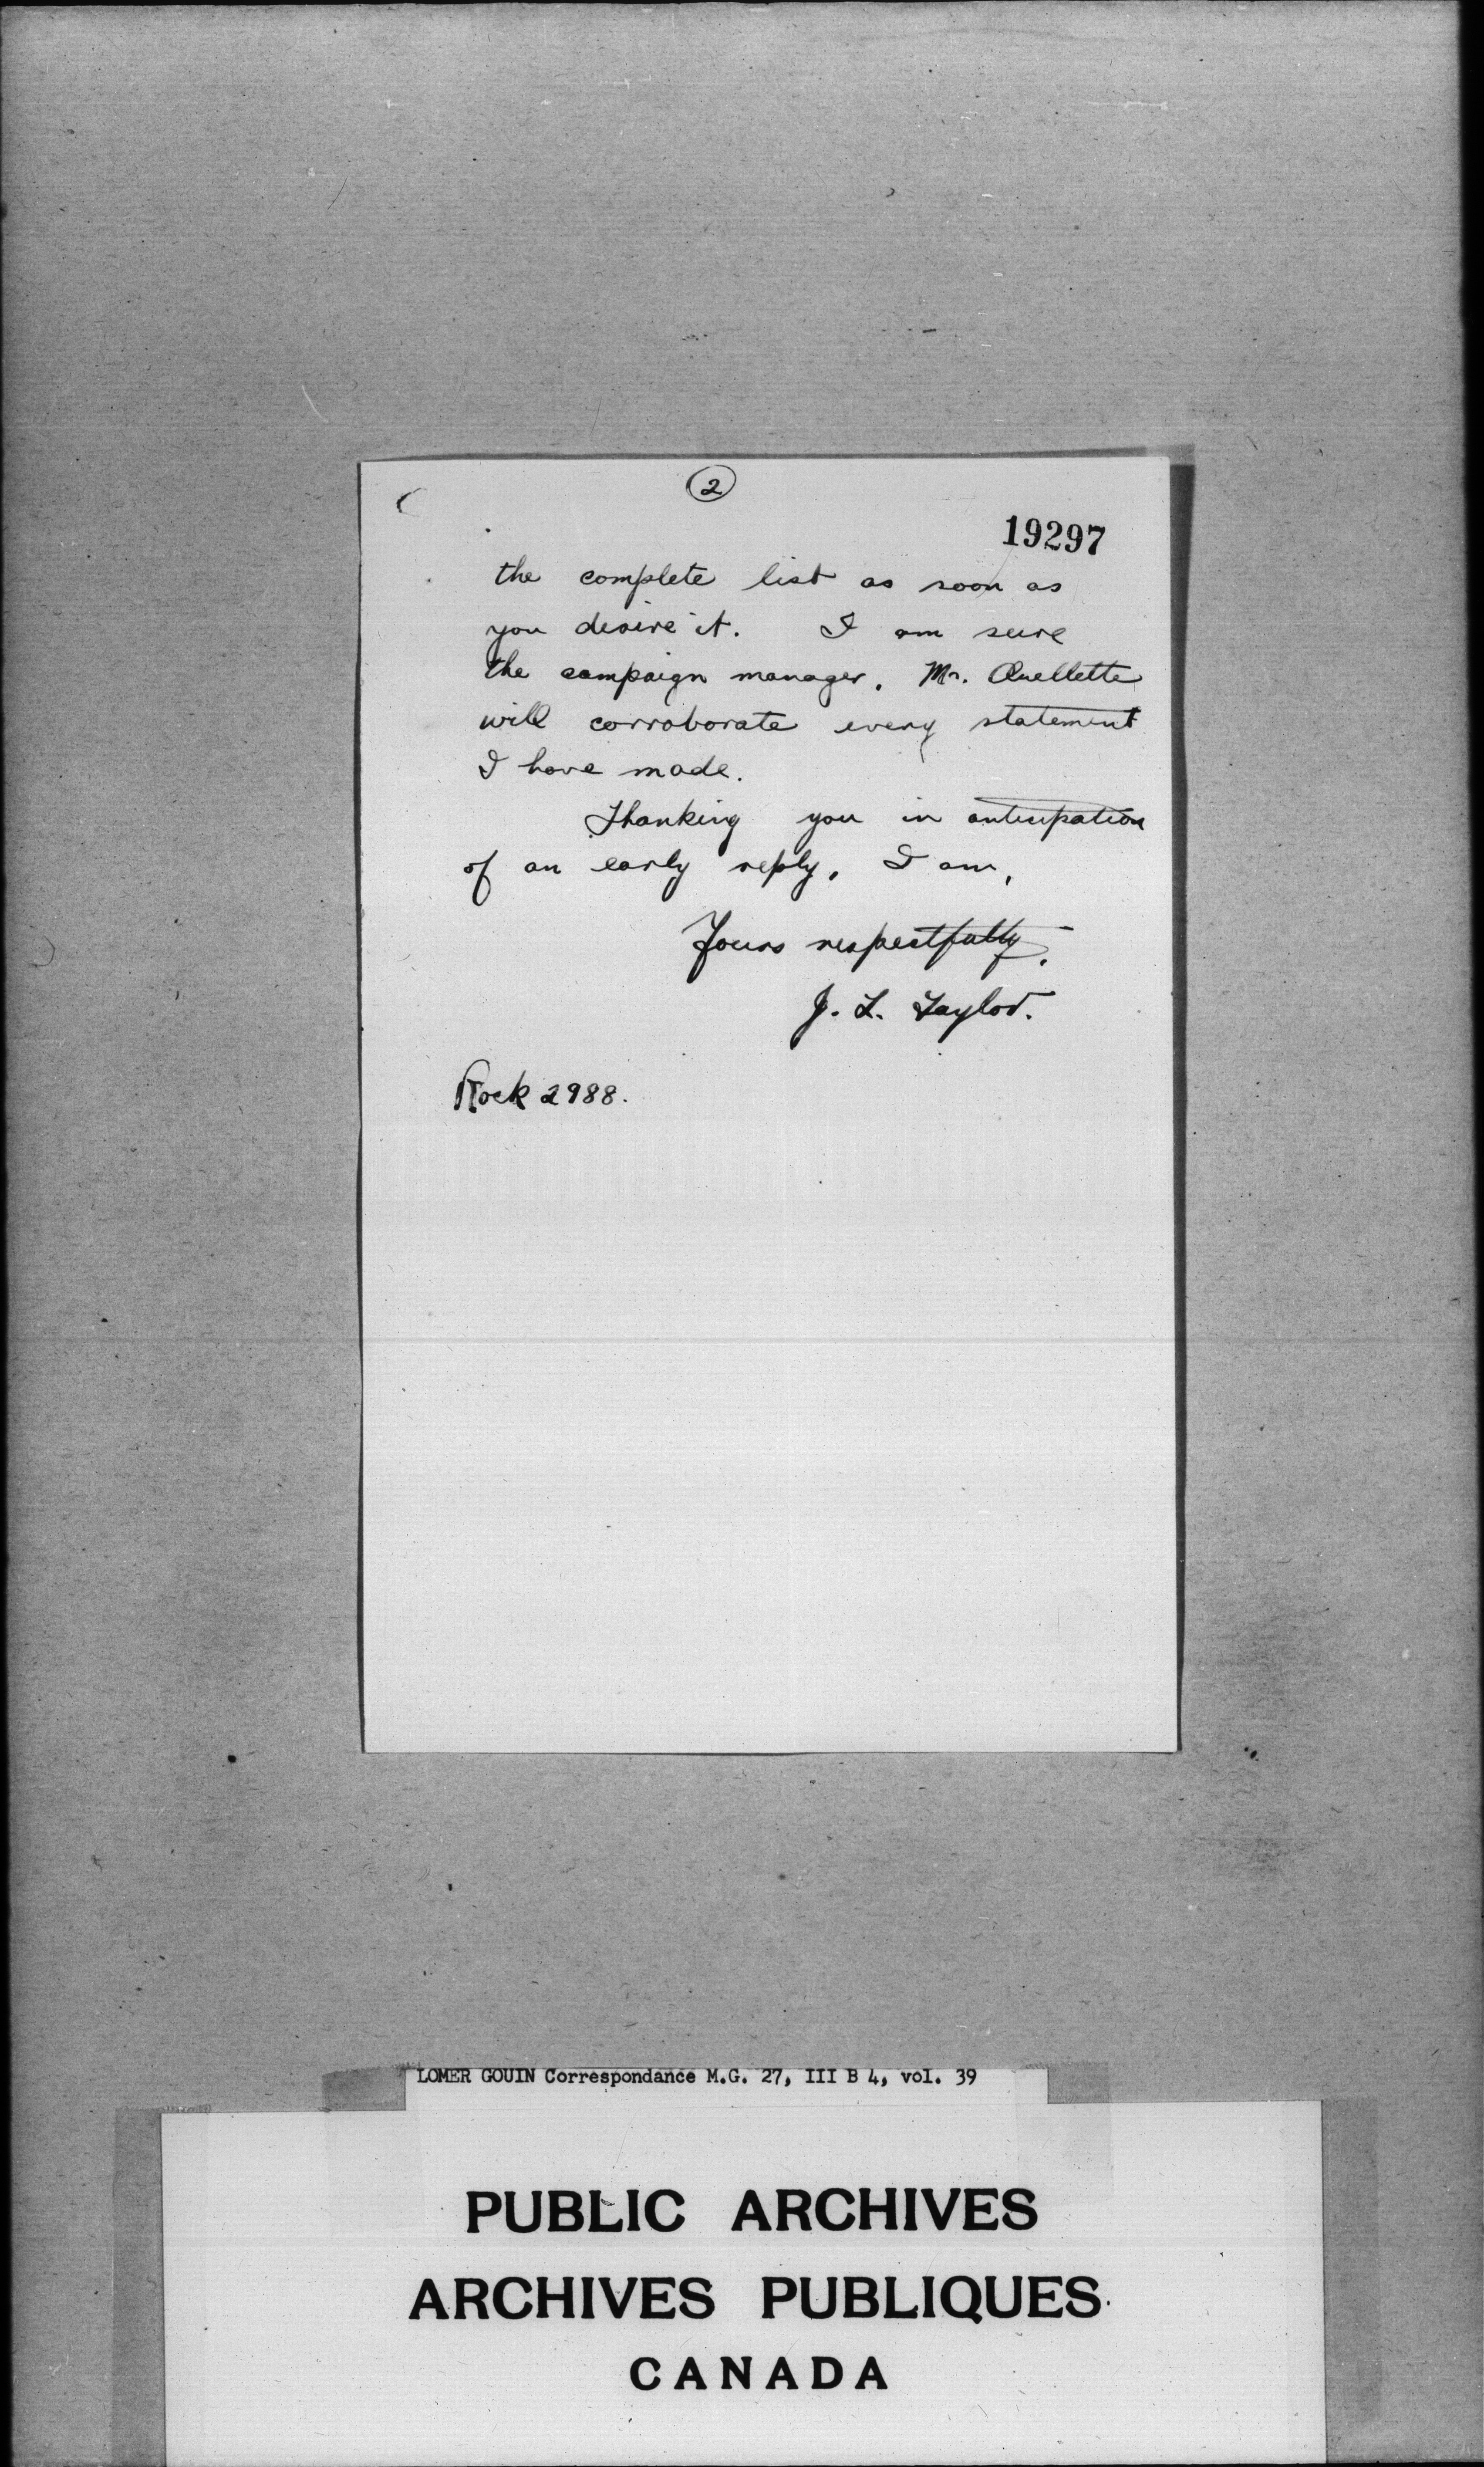 2
19297
the complete list as soon as
you desire it. I am sure
the campaign manager, Mr. Ouellette
will corroborate every statement
I have made.
Thanking you in anticipation
of an early reply, I am,
Yours respectfully,
J. L. Taylor.
Rock 2988.
LOMER GOUIN Correspondance M.G. 27, III B 4, vol. 39
PUBLIC ARCHIVES
ARCHIVES PUBLIQUES
CANADA